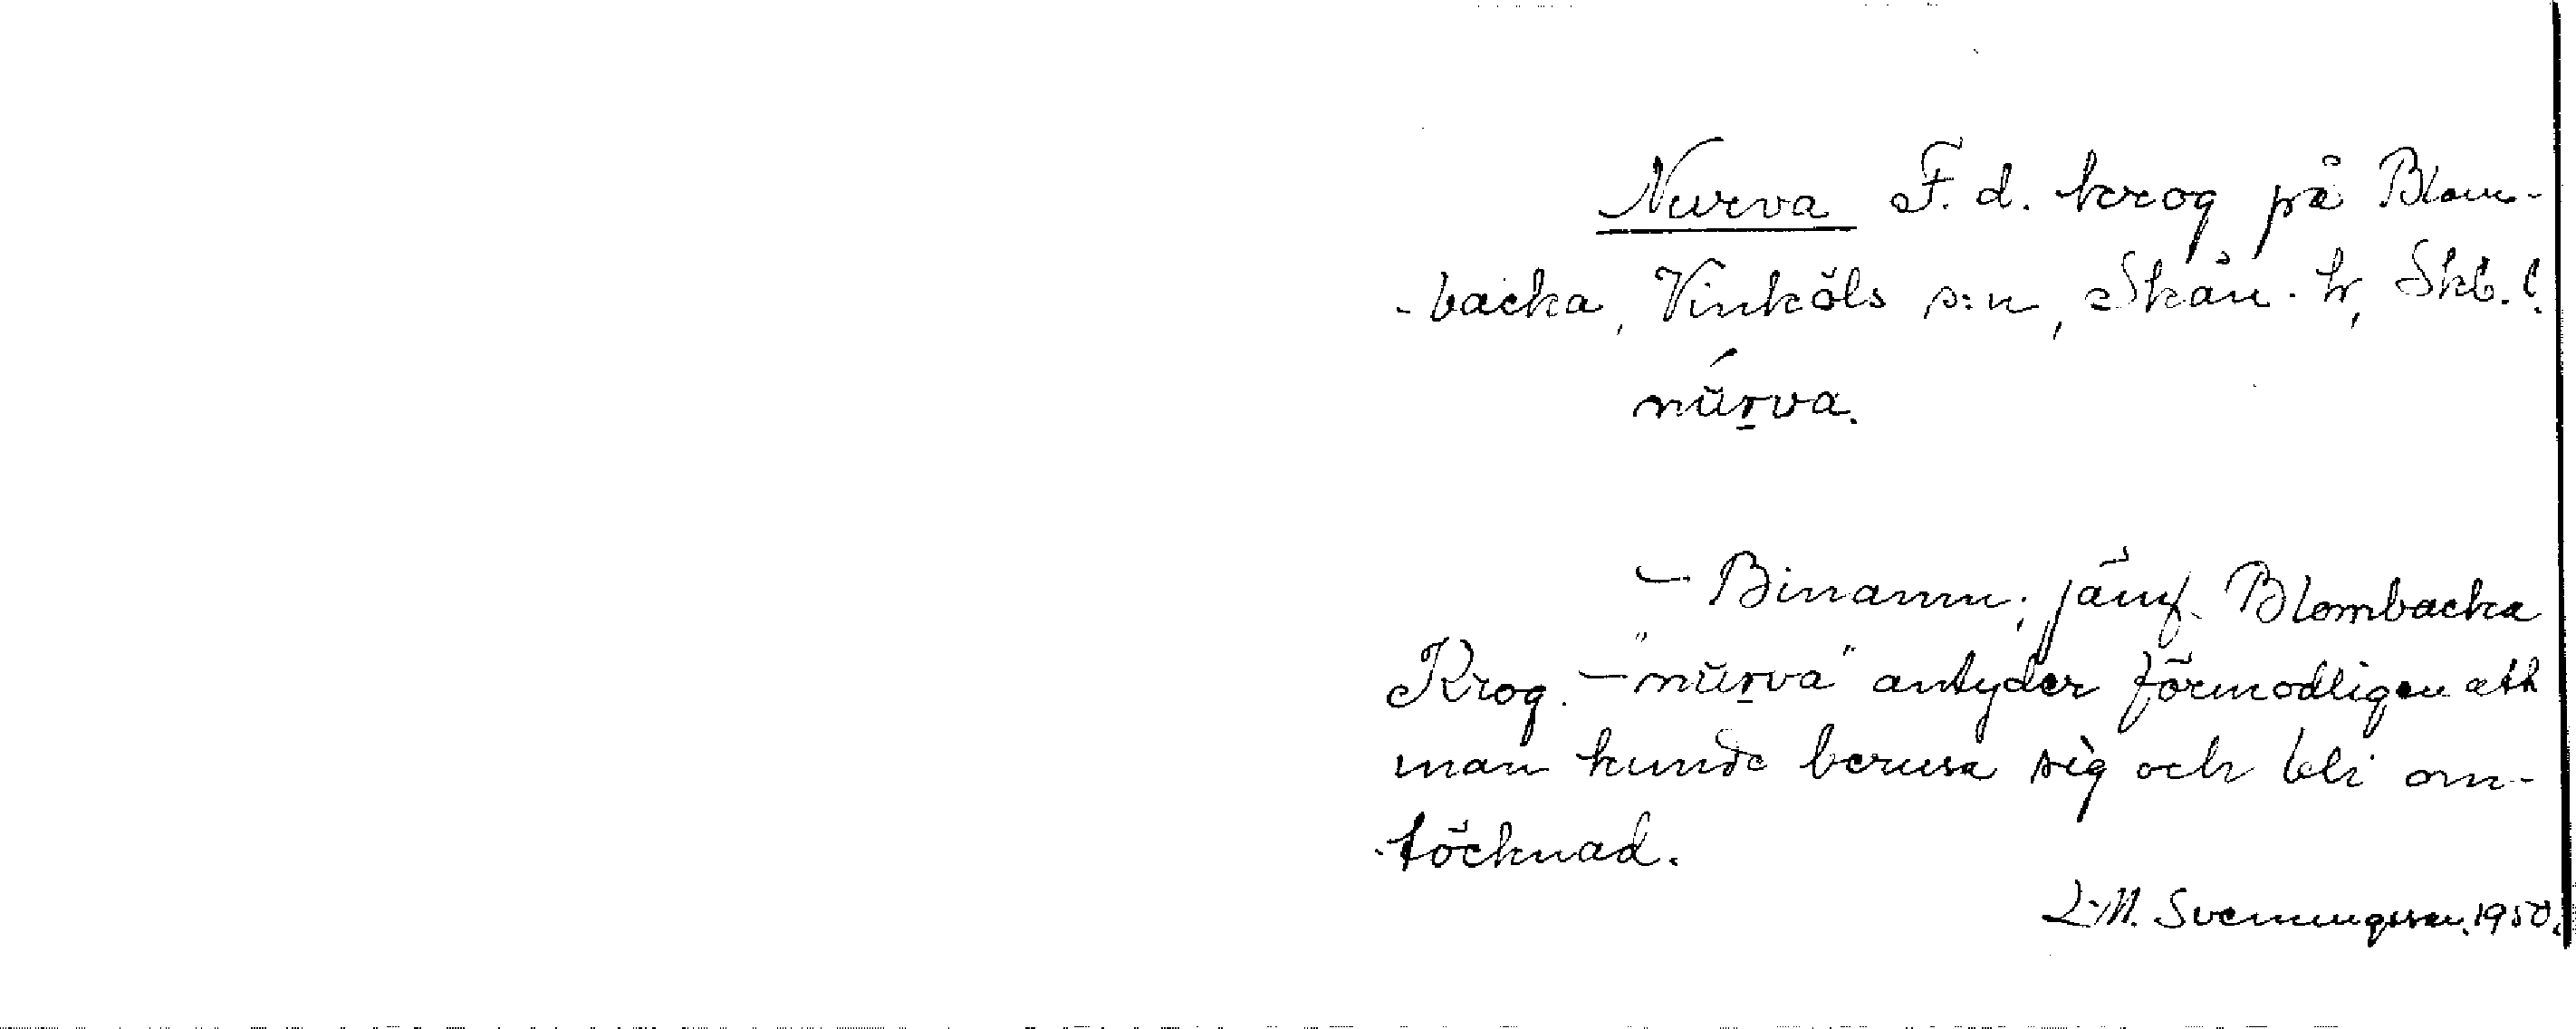 Nurva F. d. krog på Blom-
-backa, Vinköls s:n, Skån. h, Skb. l.
nŭr̠va.
– Binamn; jämf. Blombacka
Krog. – "nŭr̠va" antyder förmodligen att
man kunde berusa sig och bli om-
-töcknad.
L-M. Svenungsson. 1950.